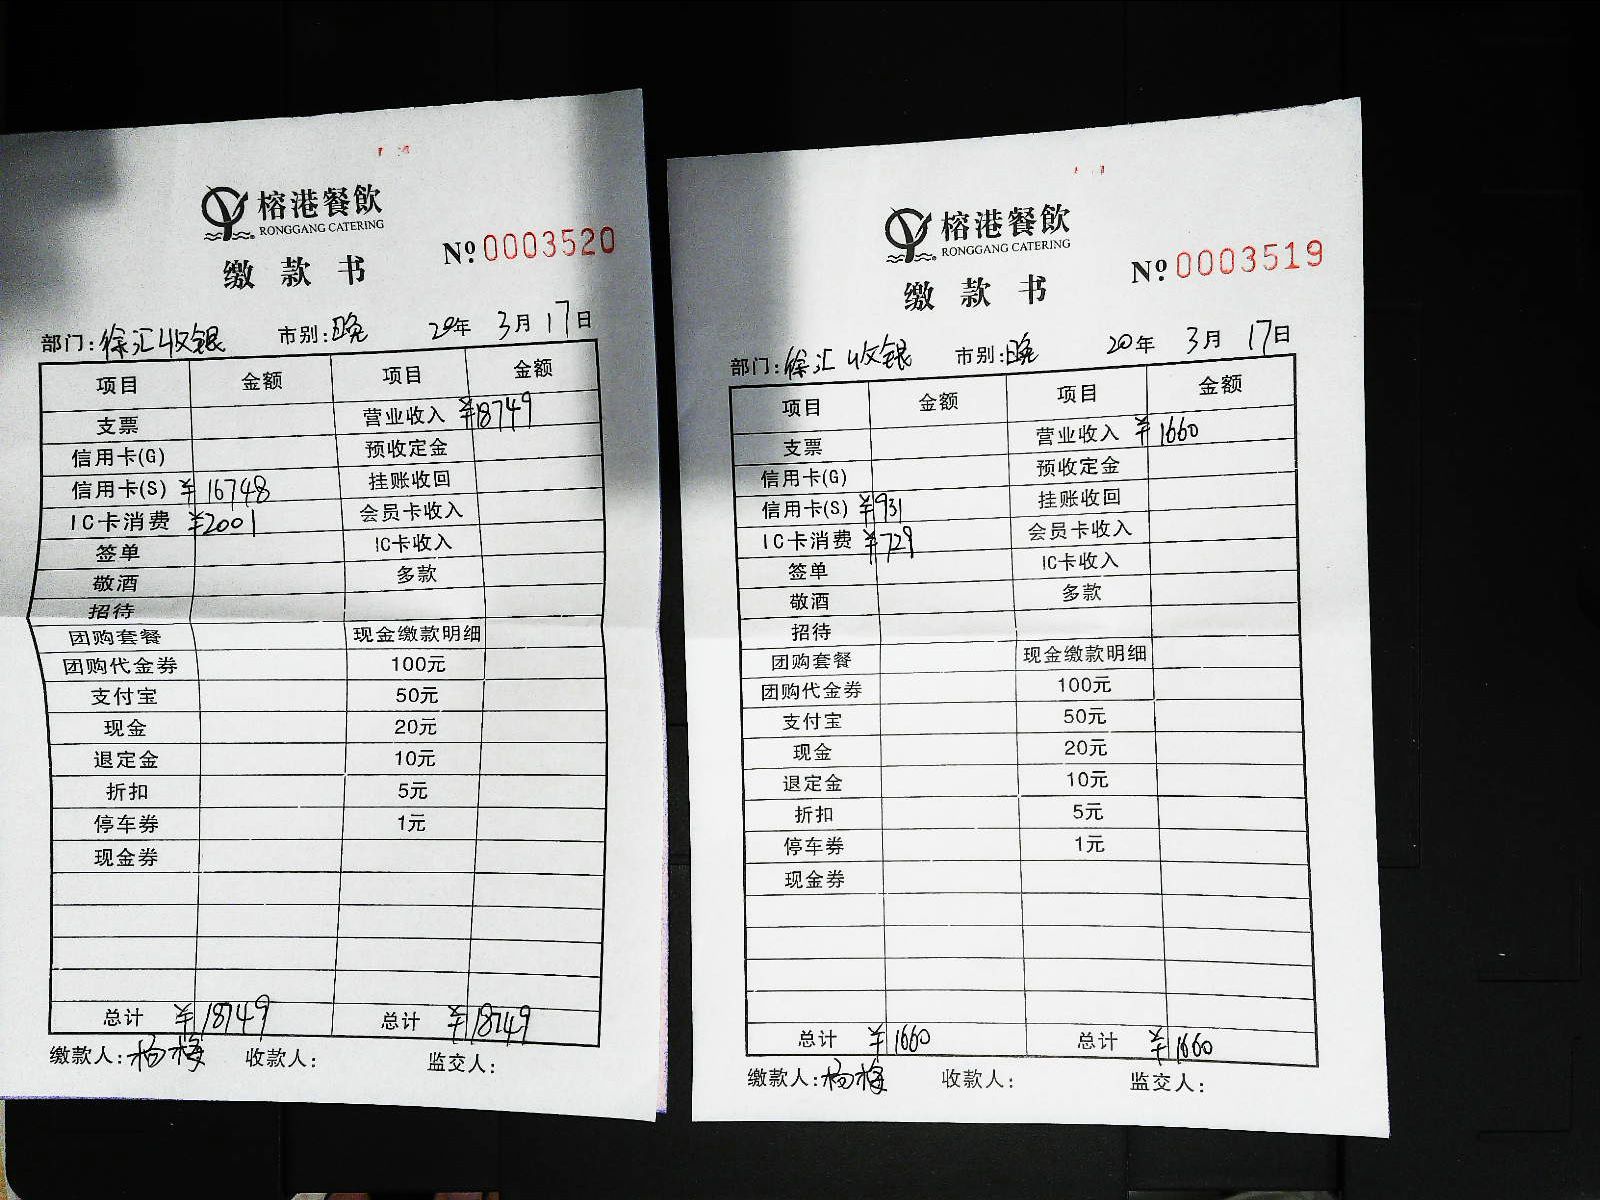 榕港餐飲
RONGGANG CATERING
缴款书
№ 0003520
部门:徐汇收银 市别:晚 20年 3月 17日
项目 金额 项目 金额
支票 营业收入 ¥18749
信用卡(G) 预收定金
信用卡(S) ¥16748 挂账收回
IC卡消费 ¥2001 会员卡收入
签单 IC卡收入
敬酒 多款
招待
团购套餐 现金缴款明细
团购代金券 100元
支付宝 50元
现金 20元
退定金 10元
折扣 5元
停车券 1元
现金券
总计 ¥18749 总计 ¥18749
缴款人:杨梅 收款人: 监交人:
榕港餐飲
RONGGANG CATERING
缴款书
№ 0003519
部门:徐汇收银 市别:晚 20年 3月 17日
项目 金额 项目 金额
支票 营业收入 ¥1660
信用卡(G) 预收定金
信用卡(S) ¥931 挂账收回
IC卡消费 ¥729 会员卡收入
签单 IC卡收入
敬酒 多款
招待
团购套餐 现金缴款明细
团购代金券 100元
支付宝 50元
现金 20元
退定金 10元
折扣 5元
停车券 1元
现金券
总计 ¥1660 总计 ¥1660
缴款人:杨梅 收款人: 监交人: